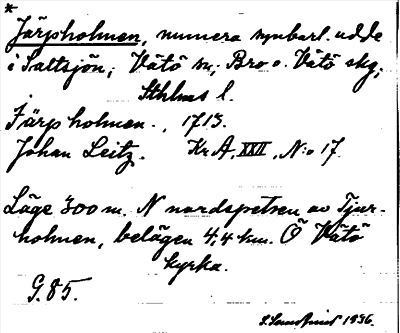 *
Järpholmen, numera synbarl. udde
i Saltsjön, Vätö sn, Bro o. Vätö skg,
Sthlms l.
Järpholmen., 1713.
Johan Leitz. Kr A, XXII, N:o 17.
Läge 300 m. N nordspetsen av Tjur-
holmen, belägen 4,4 km. Ö Vätö
kyrka.
G. 85.
1936.